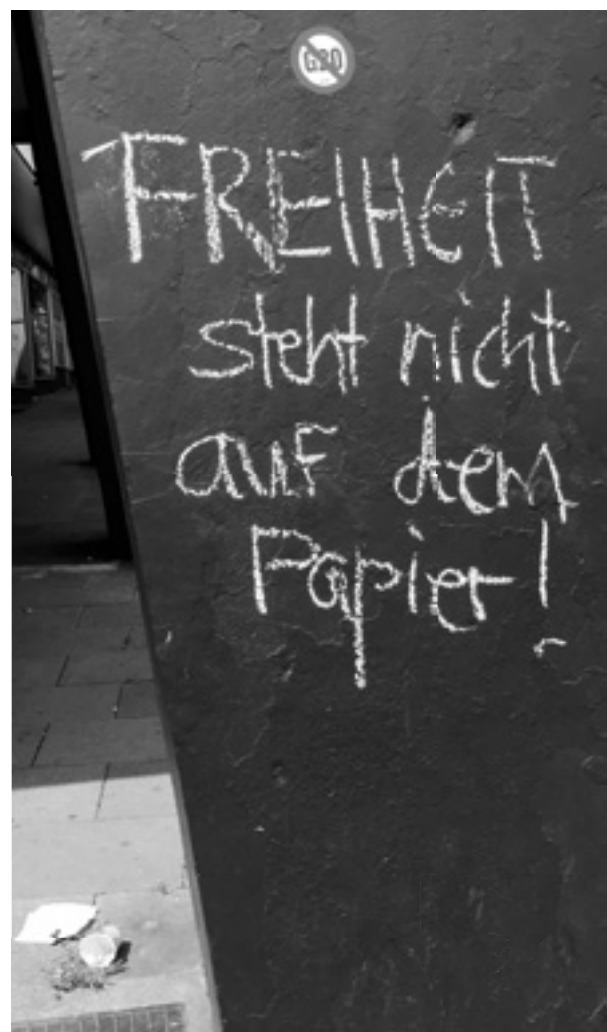 G20
FREIHEIT
steht nicht
auf dem
Papier!